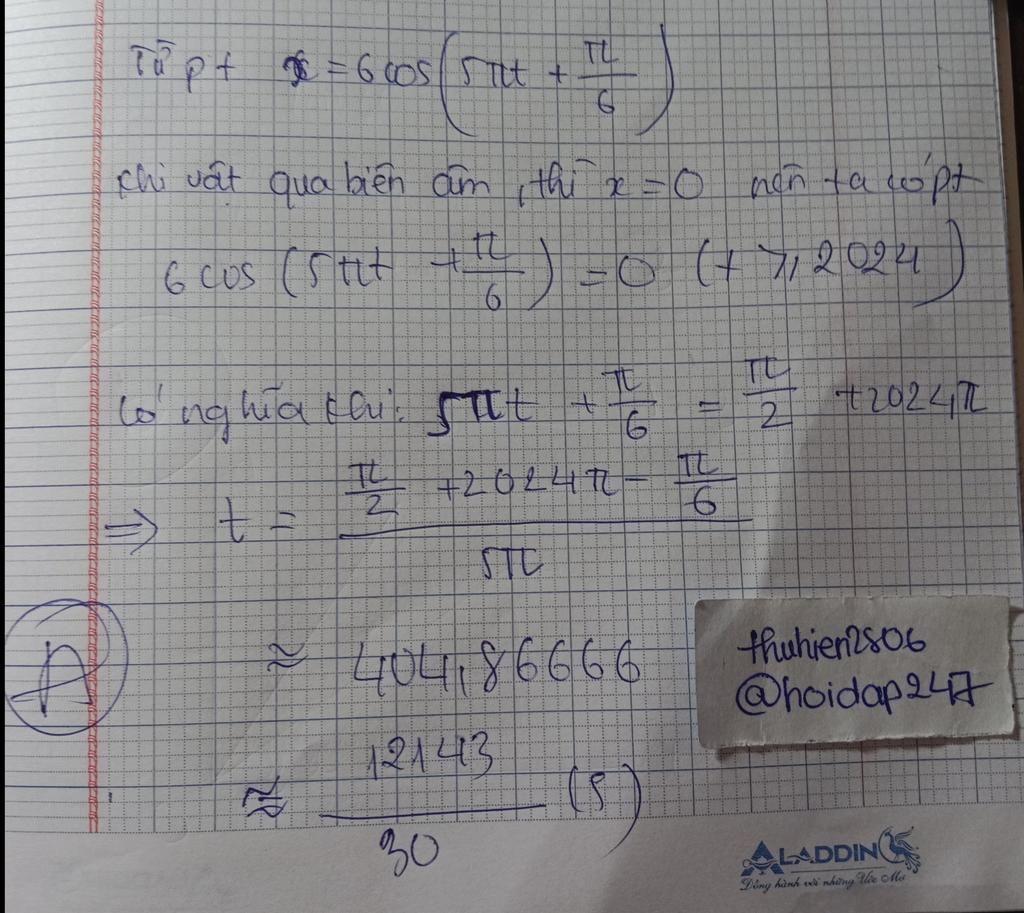 Từ pt x = 6 cos(5πt + π/6)
khi vật qua biên âm, thì x = 0 nên ta có pt
6 cos (5πt + π/6) = 0 (t ≥ 2024)
Có nghĩa khi: 5πt + π/6 = π/2 + 2024π
=> t = (π/2 + 2024π - π/6) / 5π
≈ 404,86666
A
≈ 12143/30 (s)
thuhien2806
@hoidap247
ALADDIN
Đồng hành với những Ước Mơ